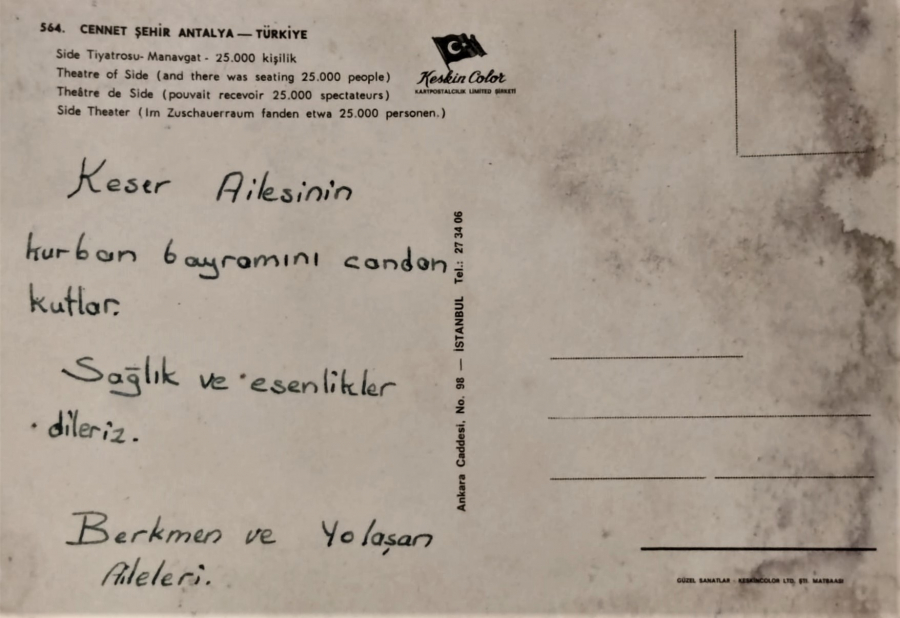 564. CENNET ŞEHİR ANTALYA — TÜRKİYE
Side Tiyatrosu- Manavgat - 25.000 kişilik
Theatre of Side (and there was seating 25.000 people)
Theâtre de Side (pouvait recevoir 25.000 spectateurs)
Side Theater (Im Zuschauerraum fanden etwa 25.000 personen.)
Keskin Color
KARTPOSTALCILIK LİMİTED ŞİRKETİ
Keser Ailesinin
kurban bayramını candan
kutlar.
Sağlık ve esenlikler
dileriz.
Berkmen ve Yolaşan
Aileleri.
Ankara Caddesi, No. 98 — İSTANBUL Tel.: 27 34 06
GÜZEL SANATLAR - KESKİNCOLOR LTD. ŞTİ. MATBAASI